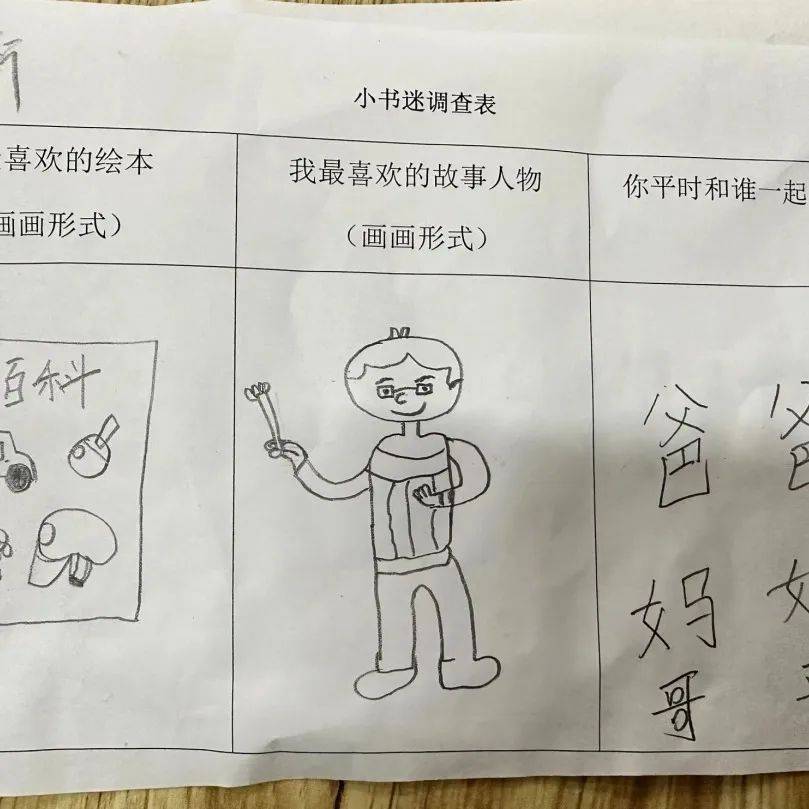 小书迷调查表
喜欢的绘本
画画形式）
我最喜欢的故事人物
（画画形式）
你平时和谁一起
百科
爸爸
妈
哥